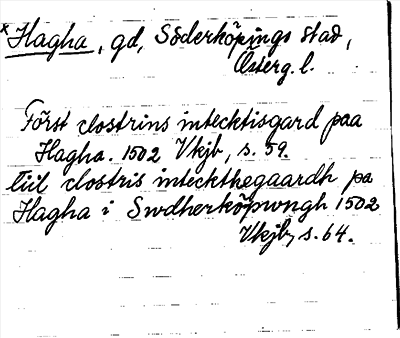 *Hagha, gd, Söderköpings stad,
Österg. l.
Först clostrins intecktisgard paa
Hagha. 1502 Vkjb, s. 59.
tiil clostris inteckthegaardh pa
Hagha i Swdherköpwngh 1502
Vkjb, s. 64.